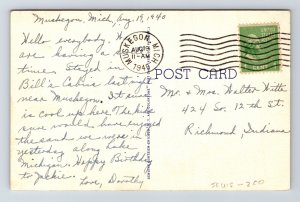 Muskegon, Mich, Aug. 19, 1940
Hello everybody. How
are
are having a
times. Stayed in
Bill's Cabins last night
near Muskegon. It sure
is cool up here. The kids
sure would have enjoyed
the sand we were in
yesterday along Lake
Michigan. Happy Birthday
to Jackie.
Love, Dorothy
MUSKEGON, MICH.
AUG 19
AM
1940
POST CARD
Mr. and Mrs. Walter Witte
424 So. 12th St.
Richmond, Indiana